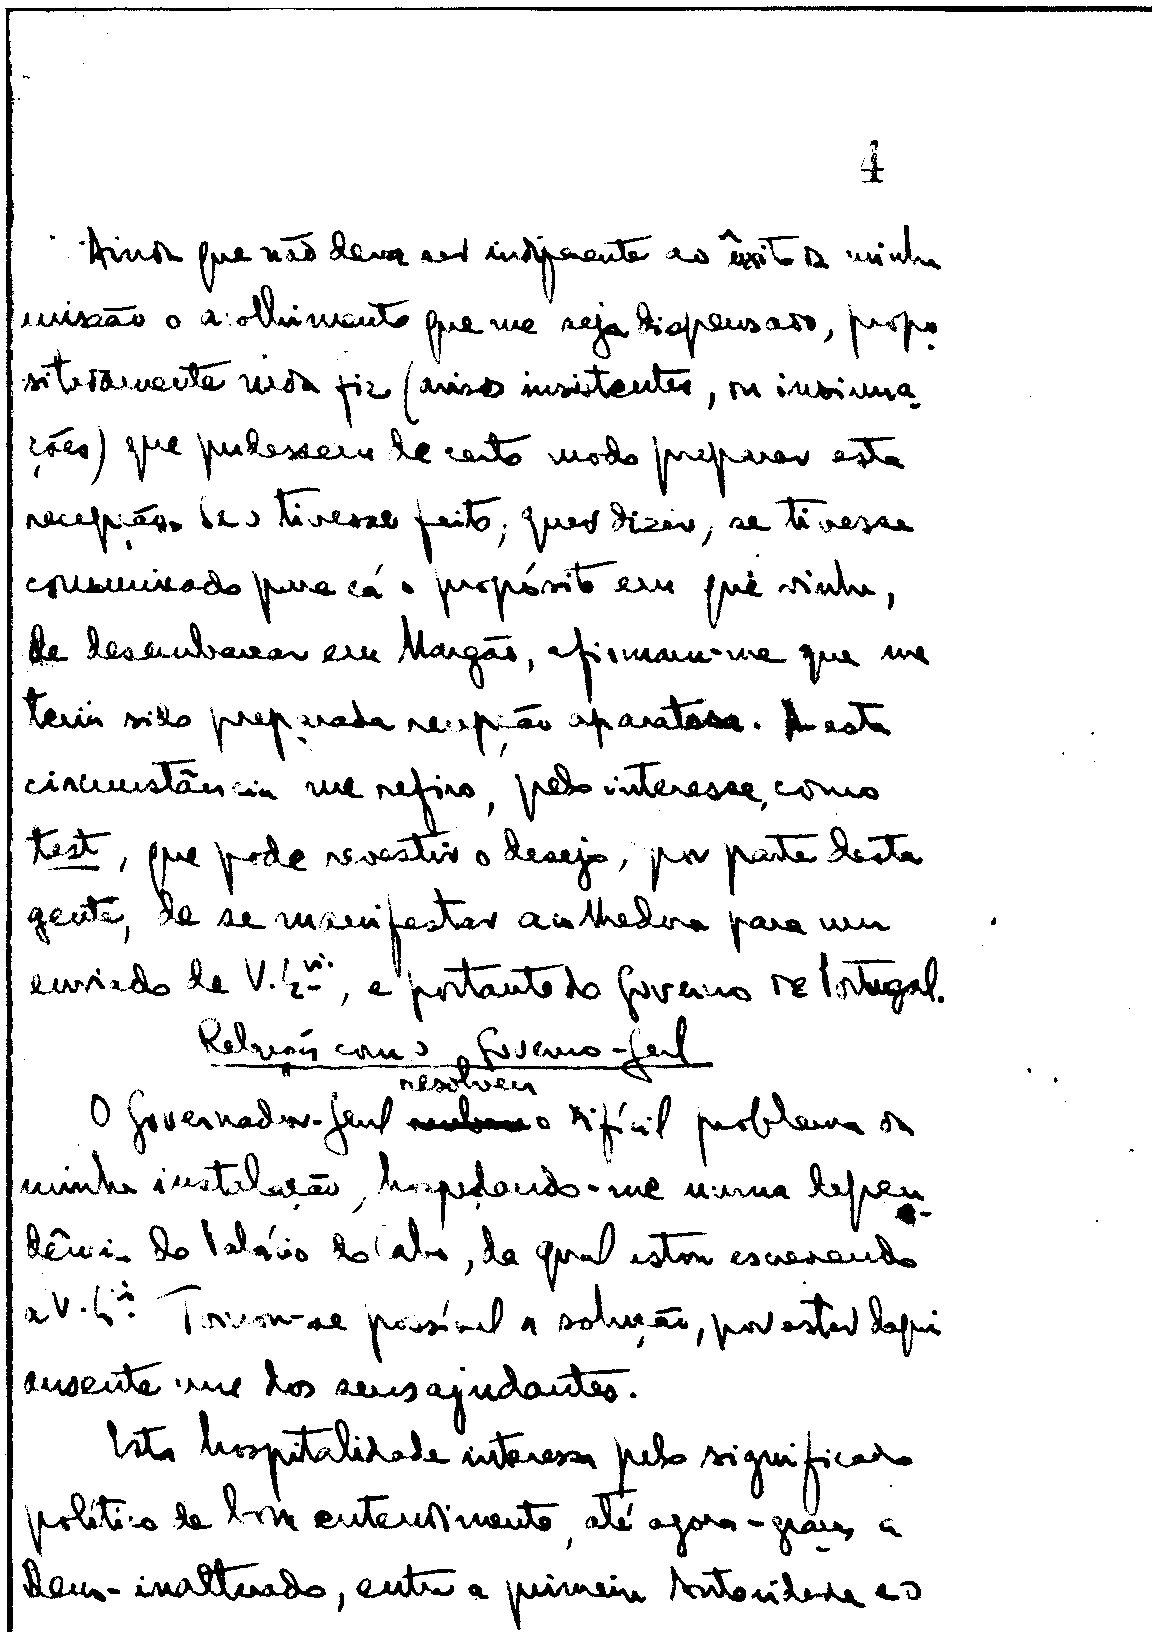 4
Ainda que não deva ser indiferente ao êxito da minha
missão o acolhimento que me seja dispensado, propo-
sitadamente nada fiz (avisos insistentes, ou insinua-
ções) que pudessem de certo modo preparar esta
recepção. Se o tivesse feito, quer dizer, se tivesse
comunicado para cá o propósito em que vinha,
de desembarcar em Margão, afirmam-me que me
teria sido preparada recepção aparatosa. A esta
circunstância me refiro, pelo interesse, como
test, que pode revestir o desejo, por parte desta
gente, de se manifestar acolhedora para um
enviado de V. Ex.ª, e portanto do Governo de Portugal.
Relações com o Governo-Geral
resolveu
O Governador-Geral o difícil problema da
minha instalação, hospedando-me numa depen-
dência do Palácio do Cabo, da qual estou escrevendo
a V. Ex.ª Tornou-se possível a solução, por estar daqui
ausente um dos seus ajudantes.
Esta hospitalidade interessa pelo significado
político de bom entendimento, até agora - graças a
Deus - inalterado, entre a primeira Autoridade e o